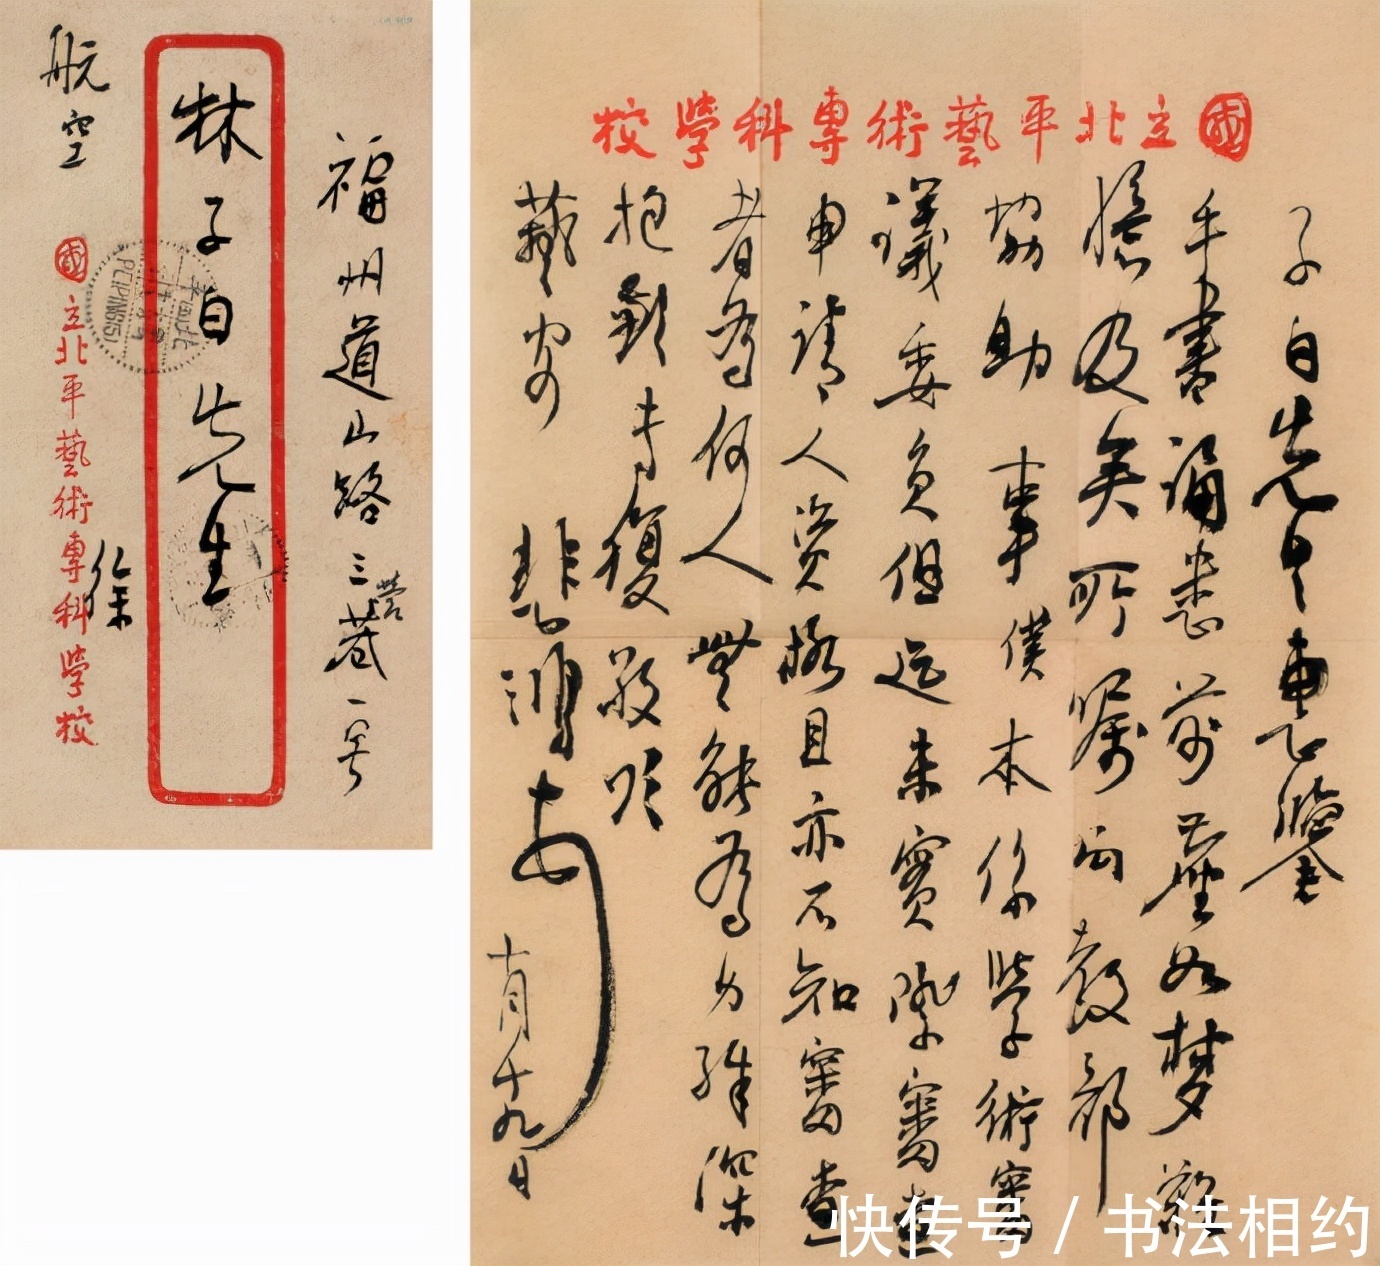 福州道山路三营巷一号
林子白先生
航空
徐
國立北平藝術專科學校
PEIPING(15)
國立北平藝術專科學校
子白先生惠鑒
手書誦悉前塵如夢難
億及矣所囑向教部
協助事僕本係學術審
議委員但迄未實際審查
申請人資格且亦不知審查
者為何人無能為力殊深
抱歉專復敬頌
藝安
悲鴻
十月十九日
快传号 / 书法相约